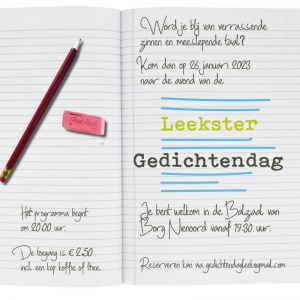 Word je blij van verrassende
zinnen en meeslepende taal?
Kom dan op 26 januari 2023
naar de avond van de
Leekster
Gedichtendag
Je bent welkom in de Balzaal van
Borg Nienoord vanaf 19.30 uur.
Reserveren kan via gedichtendagleek@gmail.com
Het programma begint
om 20.00 uur.
De toegang is € 2,50
incl. een kop koffie of thee.